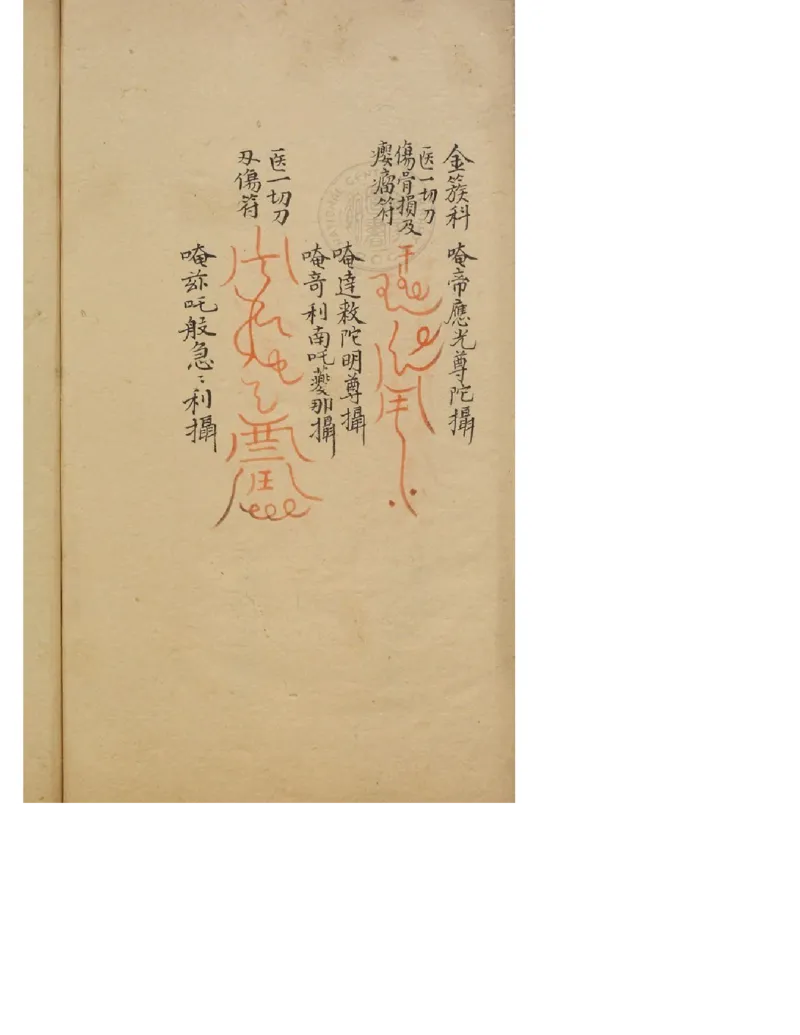 金簇科
唵帝應光尊陀攝
医一切刀
傷骨損及
癭瘤符
唵達救陀明尊攝
唵奇利南吒薆那攝
医一切刀
刄傷符
唵旀吒般急〻利攝